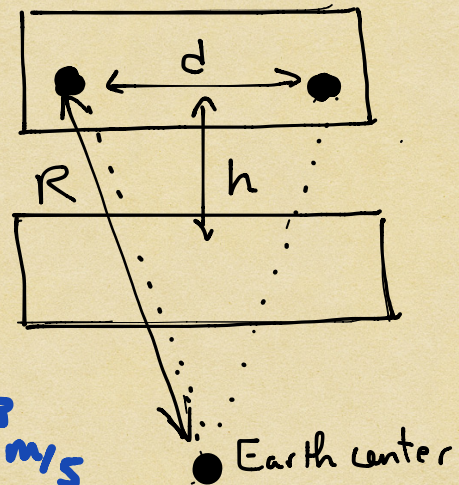 d
R
h
m/s
Earth center